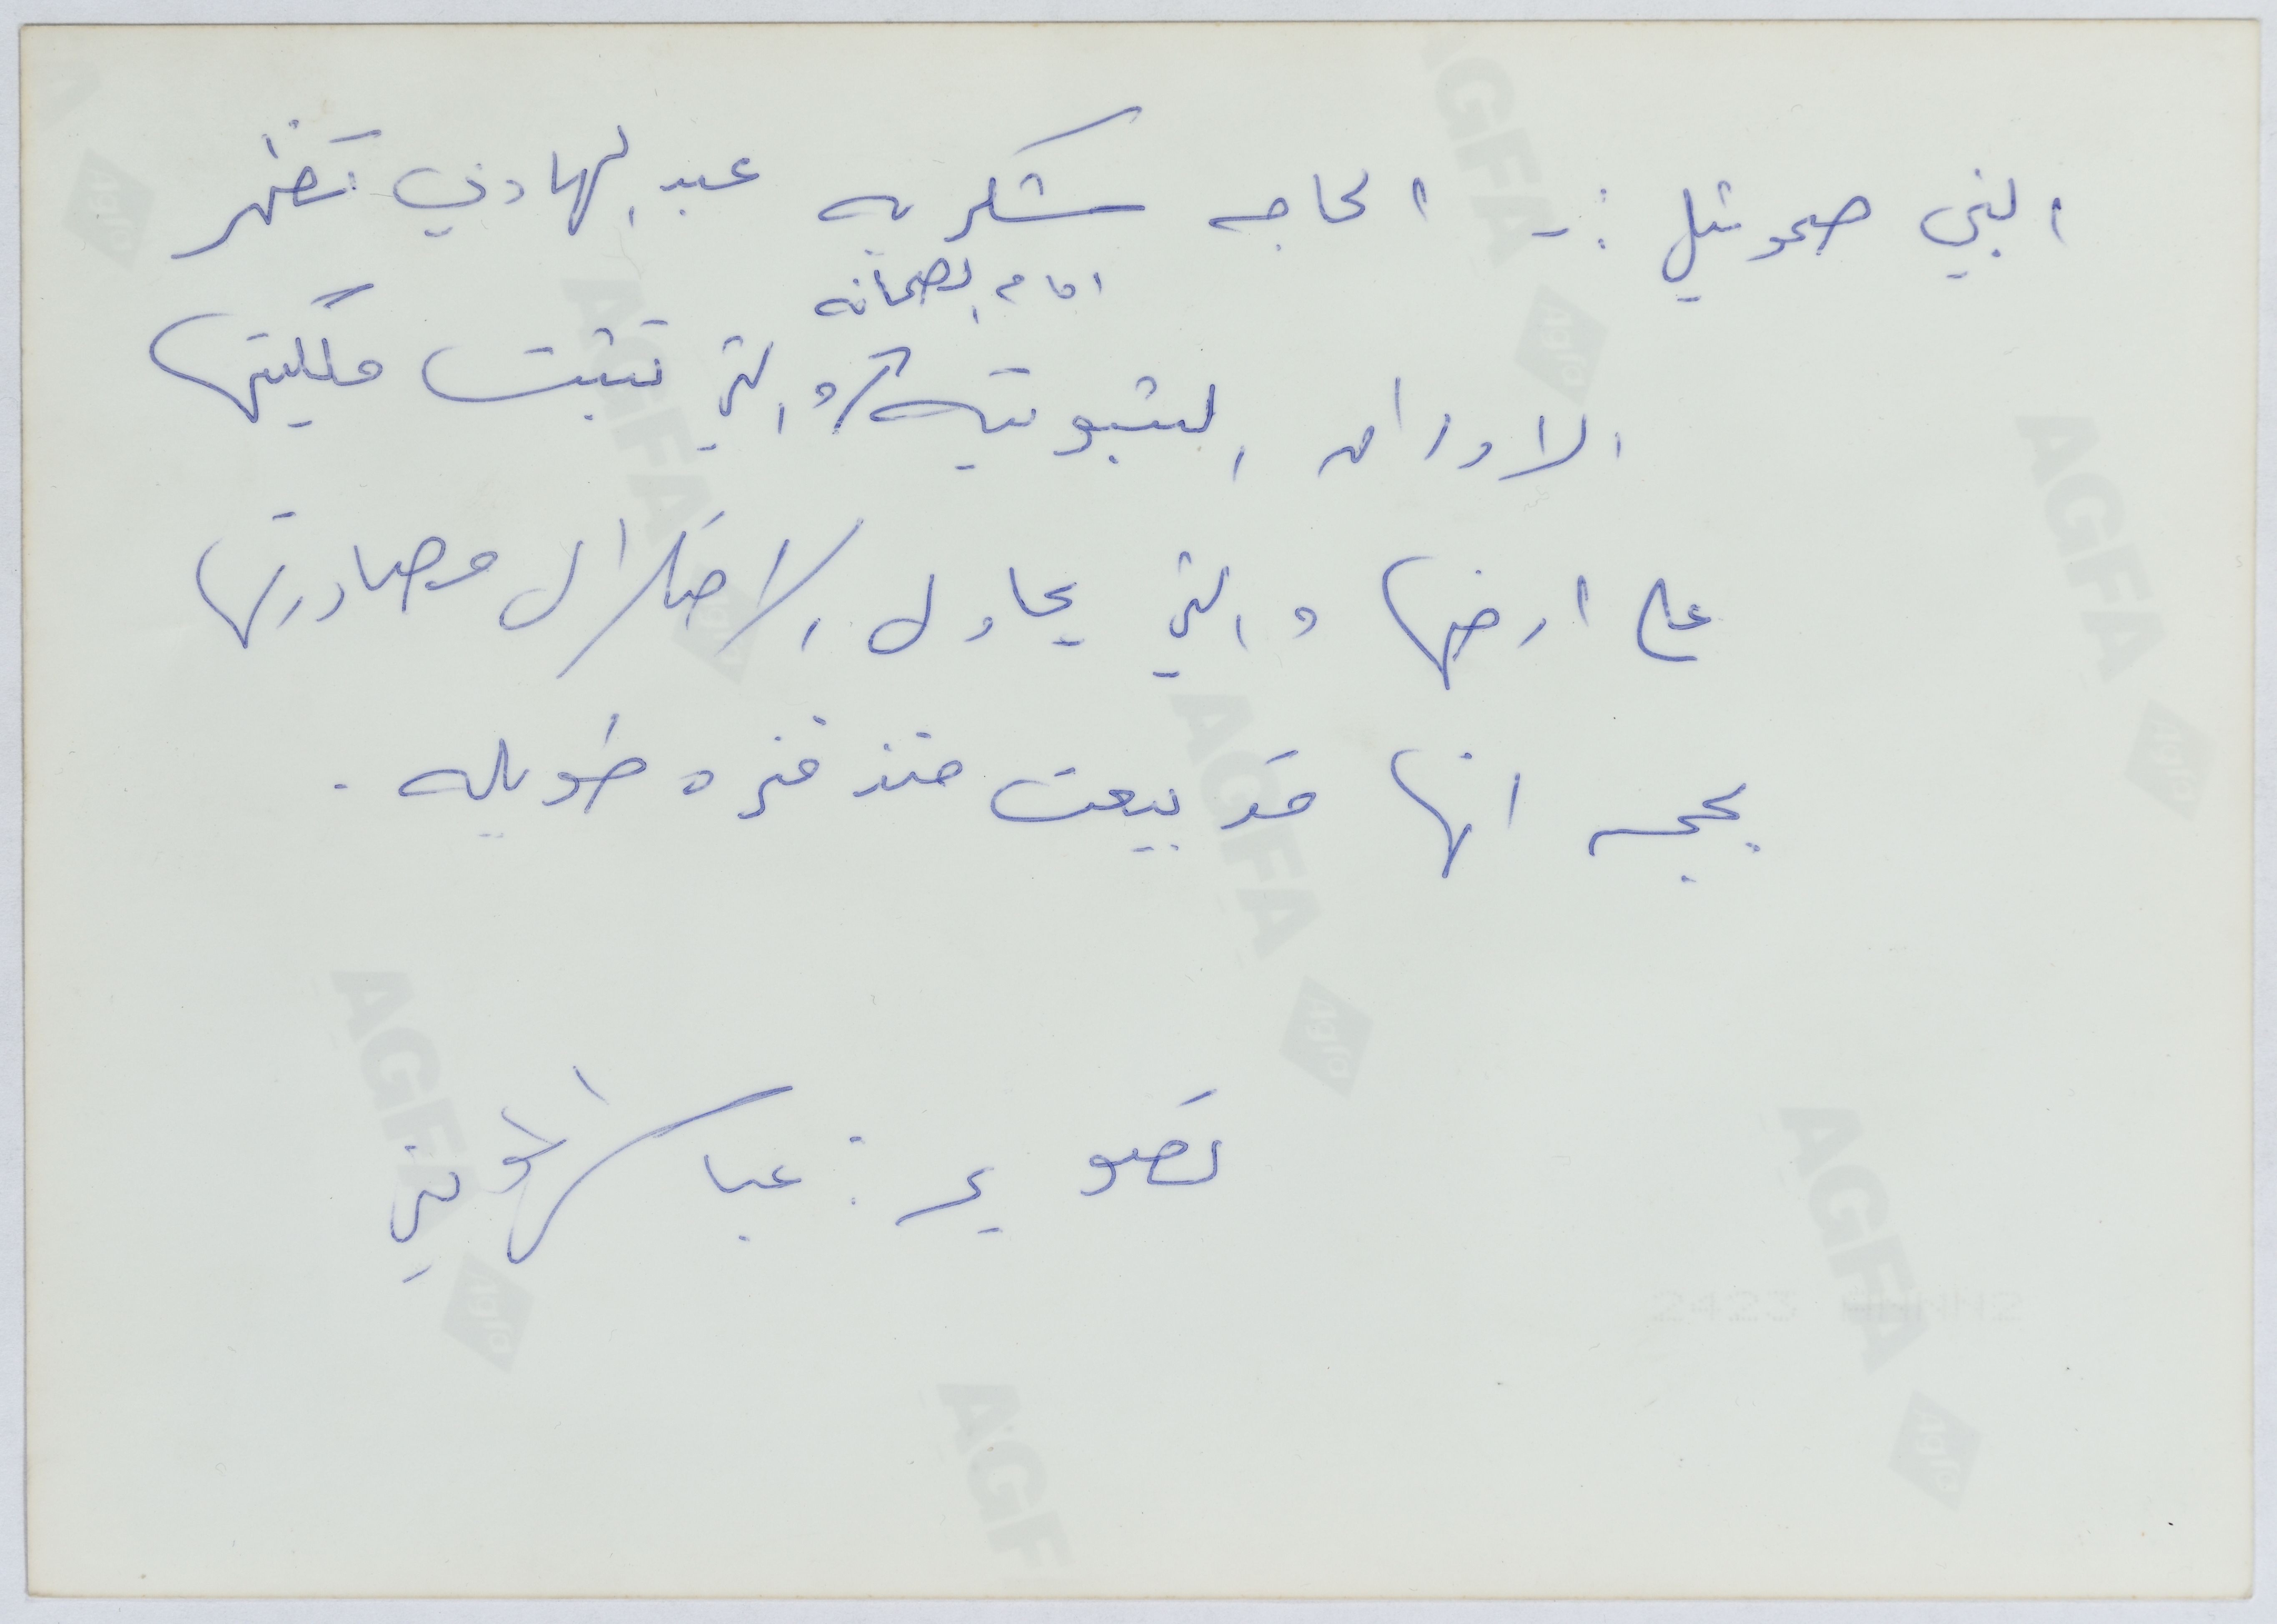 النبي صموئيل :- الحاجه شكريه عبد الهادي تظهر
امام الصحافه
الاوراق الثبوتيه والتي تثبت ملكيتها
على ارضها والتي يحاول الاحتلال مصادرتها
بحجه انها قد بيعت منذ فتره طويله .
تصوير : عباس المومني
AGFA
2423